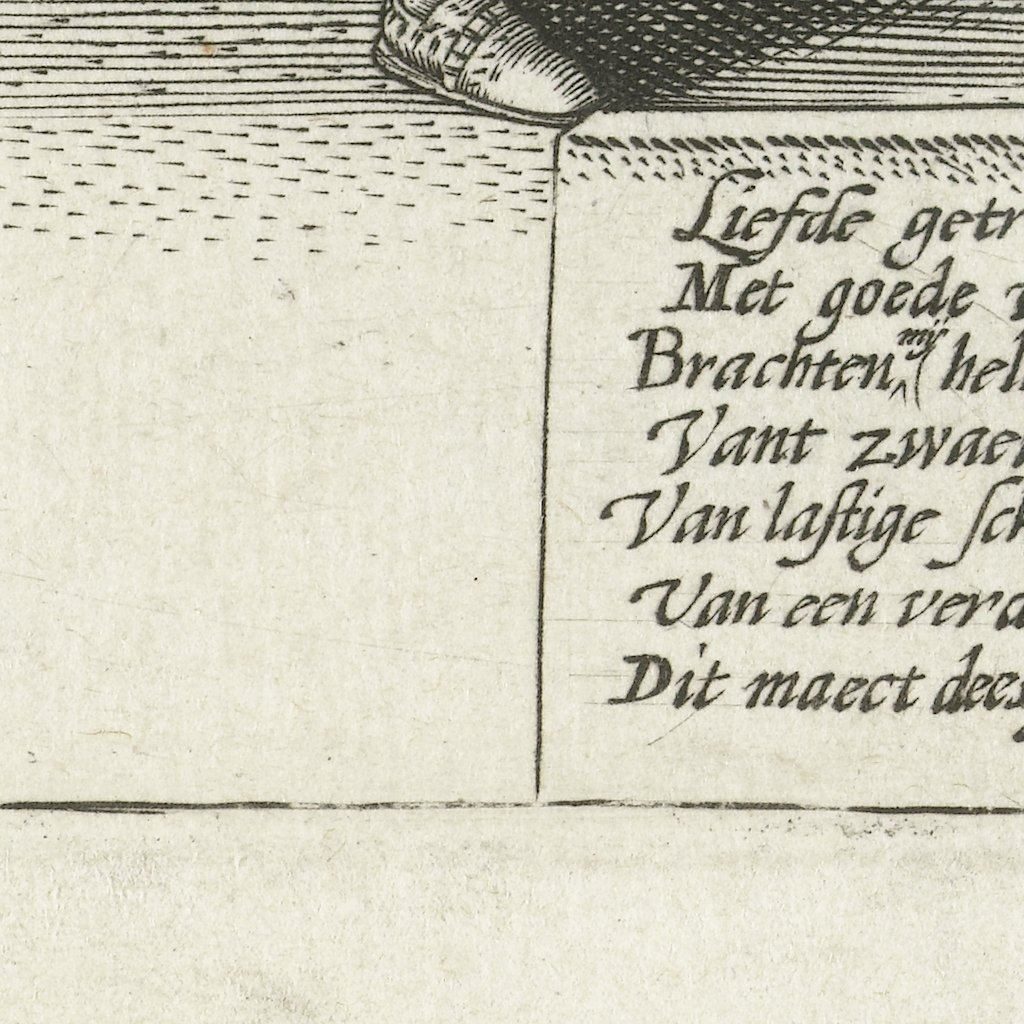 Liefde getr
Met goede
Brachten mij hel
Vant zwae
Van laſtige ſch
Van een vera
Dit maect dees